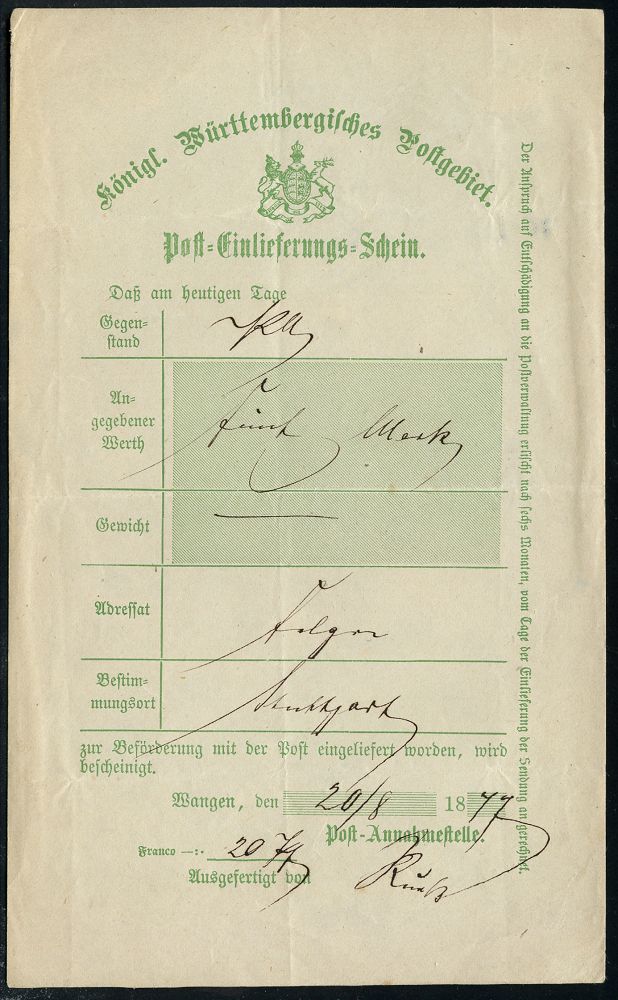 Königl. Württembergisches Postgebiet.
Post-Einlieferungs-Schein.
Daß am heutigen Tage
Gegen-
stand
An-
gegebener
Werth
fünf Mark
Gewicht
Adressat
Bestim-
mungsort
Stuttgart
zur Beförderung mit der Post eingeliefert worden, wird
bescheinigt.
Wangen, den 20/8 1877
Post-Annahmestelle.
Franco —:- 20
Ausgefertigt von
Der Anspruch auf Entschädigung an die Postverwaltung erlischt nach sechs Monaten, vom Tage der Einlieferung der Sendung an gerechnet.